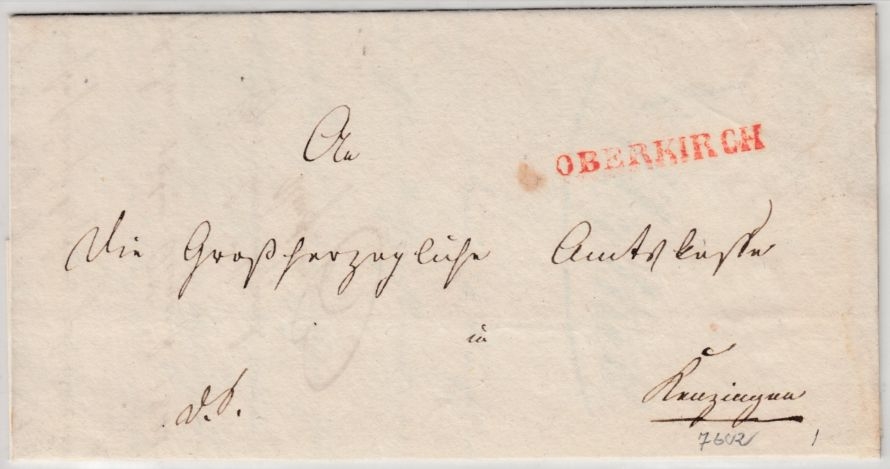 An
OBERKIRCH
die Großherzogliche Amtskasse
in
d. S.
Kenzingen